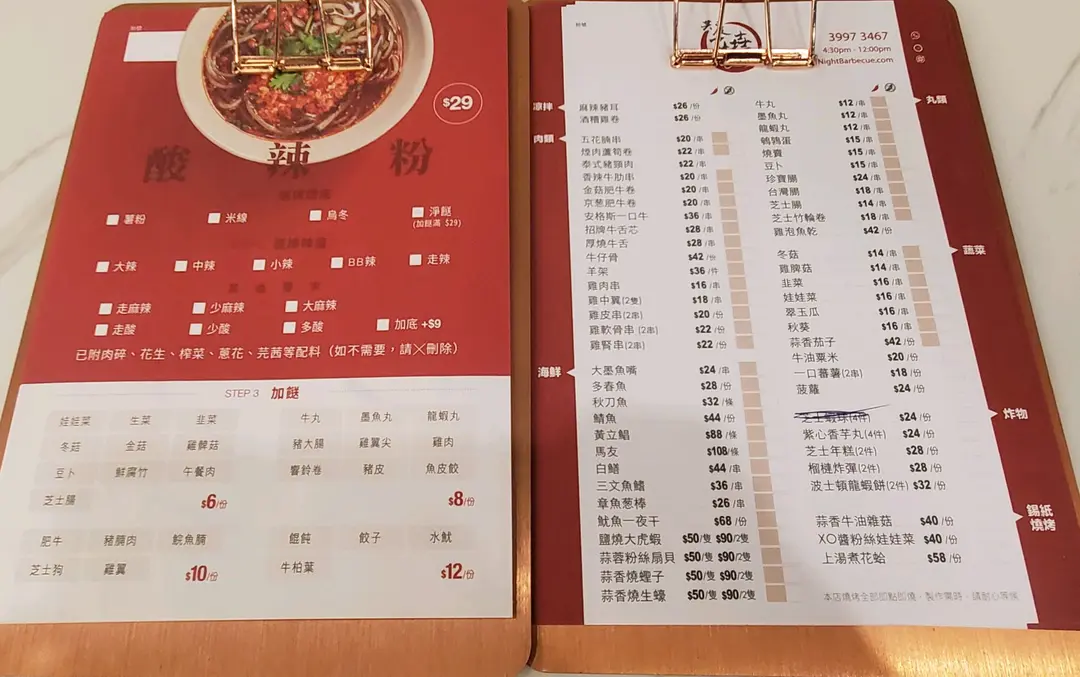 $29
酸 辣 粉
薯粉 米線 烏冬 淨餸
(加餸滿 $29)
大辣 中辣 小辣 BB辣 走辣
走麻辣 少麻辣 大麻辣
走酸 少酸 多酸 加底 +$9
已附肉碎、花生、榨菜、蔥花、芫茜等配料（如不需要，請╳刪除）
STEP 3 加餸
娃娃菜 生菜 韭菜
冬菇 金菇 雞髀菇
豆卜 鮮腐竹 午餐肉
芝士腸 $6/份
牛丸 墨魚丸 龍蝦丸
豬大腸 雞翼尖 雞肉
響鈴卷 豬皮 魚皮餃
$8/份
肥牛 豬腩肉 鯇魚腩
芝士狗 雞翼 $10/份
餛飩 餃子 水魷
牛柏葉 $12/份
3997 3467
4:30pm - 12:00pm
NightBarbecue.com
涼拌
麻辣豬耳 $26/份
酒糟雞卷 $26/份
肉類
五花腩串 $20/串
煙肉蘆筍卷 $22/串
泰式豬頸肉 $22/串
香辣牛肋串 $20/串
金菇肥牛卷 $20/串
京蔥肥牛卷 $20/串
安格斯一口牛 $36/串
招牌牛舌芯 $28/串
厚燒牛舌 $28/串
牛仔骨 $42/份
羊架 $36/件
雞肉串 $16/串
雞中翼(2隻) $18/串
雞皮串(2串) $20/份
雞軟骨串(2串) $22/份
雞腎串(2串) $22/份
海鮮
大墨魚嘴 $24/串
多春魚 $28/份
秋刀魚 $32/條
鯖魚 $44/份
黃立鯧 $88/條
馬友 $108/條
白鱔 $44/串
三文魚鰭 $36/串
章魚蔥棒 $26/串
魷魚一夜干 $68/份
鹽燒大虎蝦 $50/隻 $90/2隻
蒜蓉粉絲扇貝 $50/隻 $90/2隻
蒜香燒蟶子 $50/隻 $90/2隻
蒜香燒生蠔 $50/隻 $90/2隻
丸類
牛丸 $12/串
墨魚丸 $12/串
龍蝦丸 $12/串
鵪鶉蛋 $15/串
燒賣 $15/串
豆卜 $15/串
珍寶腸 $24/串
台灣腸 $18/串
芝士腸 $14/串
芝士竹輪卷 $18/串
雞泡魚乾 $42/份
蔬菜
冬菇 $14/串
雞髀菇 $14/串
韭菜 $16/串
娃娃菜 $16/串
翠玉瓜 $16/串
秋葵 $16/串
蒜香茄子 $42/份
牛油粟米 $20/份
一口蕃薯(2串) $18/份
菠蘿 $24/份
炸物
芝士蝦球(4件) $24/份
紫心香芋丸(4件) $24/份
芝士年糕(2件) $28/份
榴槤炸彈(2件) $28/份
波士頓龍蝦餅(2件) $32/份
錫紙
燒烤
蒜香牛油雜菇 $40/份
XO醬粉絲娃娃菜 $40/份
上湯煮花蛤 $58/份
本店燒烤全部即點即燒，製作需時，請耐心等候